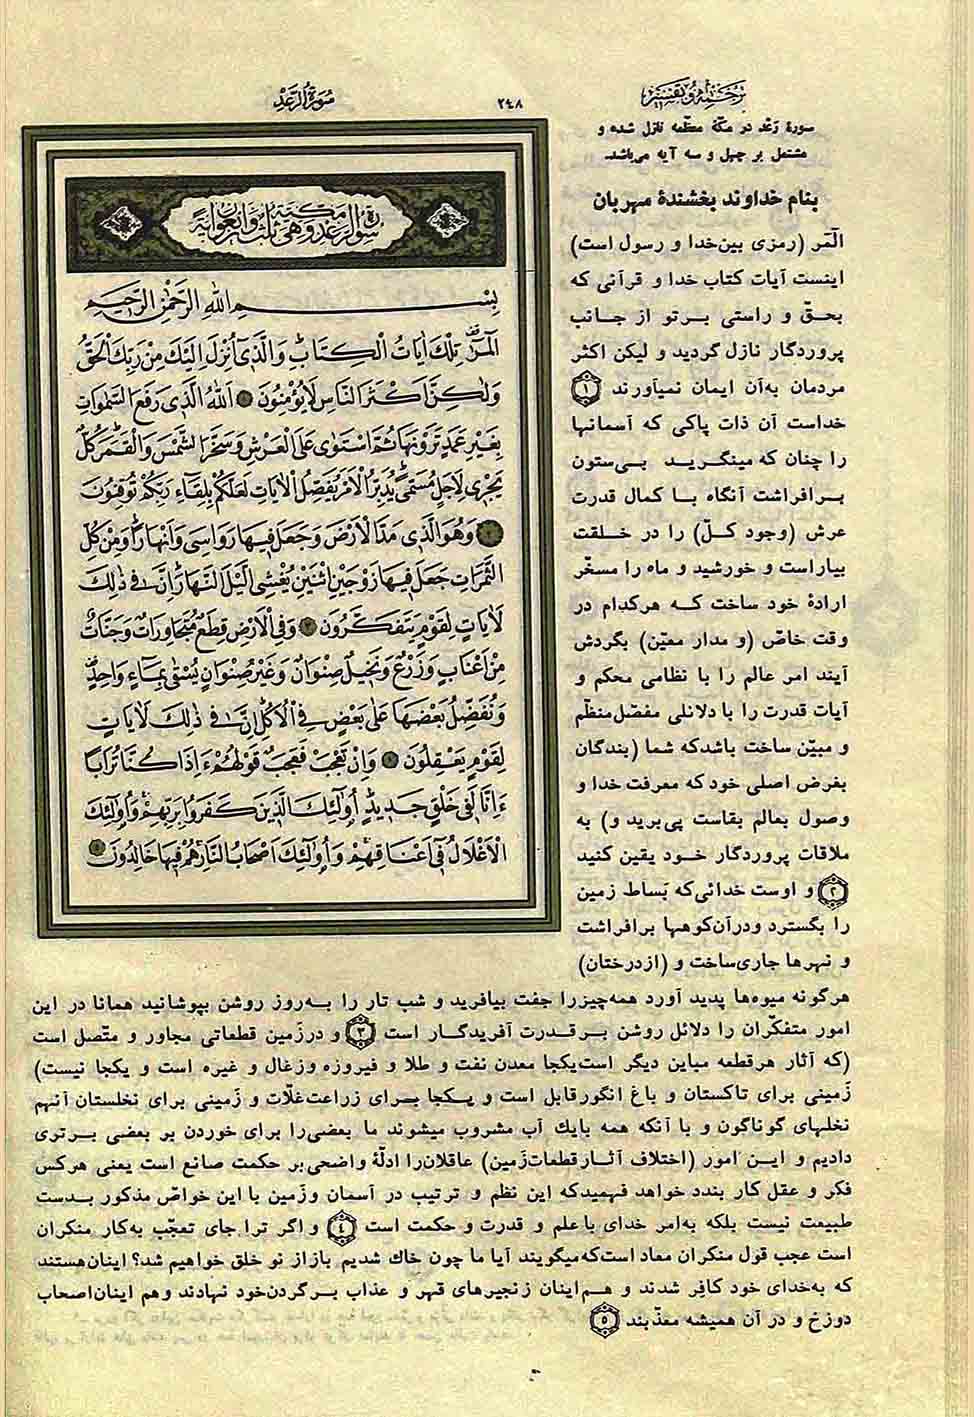 سُورَةُ الرَّعْدِ
٢٤٨
ترجمه و تفسیر
سورهٔ رَعْد در مکّهٔ معظّمه نازل شده و
مشتمل بر چهل و سه آیه می‌باشد.
بنام خداوند بخشندهٔ مهربان
الٓمٓر (رمزی بین‌خدا و رسول است)
اینست آیات کتاب خدا و قرآنی که
بحقّ و راستی بر تو از جانب
پروردگار نازل گردید و لیکن اکثر
مردمان به‌آن ایمان نمیآورند ۱
خداست آن ذات پاکی که آسمانها
را چنان که مینگرید بی‌ستون
برافراشت آنگاه با کمال قدرت
عرش (وجود کلّ) را در خلقت
بیاراست و خورشید و ماه را مسخّر
ارادهٔ خود ساخت که هرکدام در
وقت خاصّ (و مدار معیّن) بگردش
آیند امر عالم را با نظامی محکم و
آیات قدرت را با دلائلی مفصّل منظّم
و مبیّن ساخت باشدکه شما (بندگان
بغرض اصلی خود که معرفت خدا و
وصول بعالم بقاست پی‌برید و) به
ملاقات پروردگار خود یقین کنید
۲ و اوست خدائی‌که بَساط زمین
را بگسترد ودرآن‌کوهها برافراشت
و نهرها جاری‌ساخت و (ازدرختان)
سُورَةُ الرَّعْدِ مَكِّيَّةٌ وَهِيَ ثَلٰثٌ وَاَرْبَعُونَ اٰيَةً
بِسْمِ اللّٰهِ الرَّحْمٰنِ الرَّحِيمِ
الٓمٓرٰ تِلْكَ اٰيَاتُ الْكِتَابِ وَالَّذٖى اُنْزِلَ اِلَيْكَ مِنْ رَبِّكَ الْحَقُّ
وَلٰكِنَّ اَكْثَرَ النَّاسِ لَايُؤْمِنُونَ ۱ اَللّٰهُ الَّذٖى رَفَعَ السَّمٰوَاتِ
بِغَيْرِ عَمَدٍ تَرَوْنَهَا ثُمَّ اسْتَوٰى عَلَى الْعَرْشِ وَسَخَّرَ الشَّمْسَ وَالْقَمَرَ كُلٌّ
يَجْرٖى لِاَجَلٍ مُسَمًّى يُدَبِّرُ الْاَمْرَ يُفَصِّلُ الْاٰيَاتِ لَعَلَّكُمْ بِلِقَاءِ رَبِّكُمْ تُوقِنُونَ
۲ وَهُوَ الَّذٖى مَدَّ الْاَرْضَ وَجَعَلَ فٖيهَا رَوَاسِىَ وَاَنْهَارًا وَمِنْ كُلِّ
الثَّمَرَاتِ جَعَلَ فٖيهَا زَوْجَيْنِ اثْنَيْنِ يُغْشِى الَّيْلَ النَّهَارَ اِنَّ فٖى ذٰلِكَ
لَاٰيَاتٍ لِقَوْمٍ يَتَفَكَّرُونَ ۳ وَفِى الْاَرْضِ قِطَعٌ مُتَجَاوِرَاتٌ وَجَنَّاتٌ
مِنْ اَعْنَابٍ وَزَرْعٌ وَنَخٖيلٌ صِنْوَانٌ وَغَيْرُ صِنْوَانٍ يُسْقٰى بِمَاءٍ وَاحِدٍ
وَنُفَضِّلُ بَعْضَهَا عَلٰى بَعْضٍ فِى الْاُكُلِ اِنَّ فٖى ذٰلِكَ لَاٰيَاتٍ
لِقَوْمٍ يَعْقِلُونَ ۴ وَاِنْ تَعْجَبْ فَعَجَبٌ قَوْلُهُمْ ءَاِذَا كُنَّا تُرَابًا
ءَاِنَّا لَفٖى خَلْقٍ جَدٖيدٍ اُولٰئِكَ الَّذٖينَ كَفَرُوا بِرَبِّهِمْ وَاُولٰئِكَ
الْاَغْلَالُ فٖى اَعْنَاقِهِمْ وَاُولٰئِكَ اَصْحَابُ النَّارِ هُمْ فٖيهَا خَالِدُونَ ۵
هرگونه میوه‌ها پدید آورد همه‌چیزرا جفت بیافرید و شب تار را به‌روز روشن بپوشانید همانا در این
امور متفکّران را دلائل روشن بر قدرت آفریدگار است ۳ و درزَمین قطعاتی مجاور و متّصل است
(که آثار هرقطعه مباین دیگر است‌یکجا معدن نفت و طلا و فیروزه وزغال و غیره است و یکجا نیست)
زَمینی برای تاکستان و باغ انگورقابل است و یکجا برای زراعت‌غلّات و زَمینی برای نخلستان آنهم
نخلهای گوناگون و با آنکه همه بایك آب مشروب میشوند ما بعضی‌را برای خوردن بر بعضی برتری
دادیم و این امور (اختلاف آثارقطعات‌زَمین) عاقلان‌را ادلّهٔ واضحی‌بر حکمت صانع است یعنی هرکس
فکر و عقل کار بندد خواهد فهمیدکه این نظم و ترتیب در آسمان وزَمین با این خواصّ مذکور بدست
طبیعت نیست بلکه به‌امر خدای باعلم و قدرت و حکمت است ٤ و اگر ترا جای تعجّب به‌کار منکران
است عجب قول منکران معاد است‌که‌میگویند آیا ما چون خاك شدیم بازاز نو خلق خواهیم شد؟ اینان‌هستند
که به‌خدای خود کافِر شدند و هم‌اینان زنجیرهای قهر و عذاب برگردن‌خود نهادند وهم اینان‌اصحاب
دوزخ و در آن همیشه معذّبند ۵